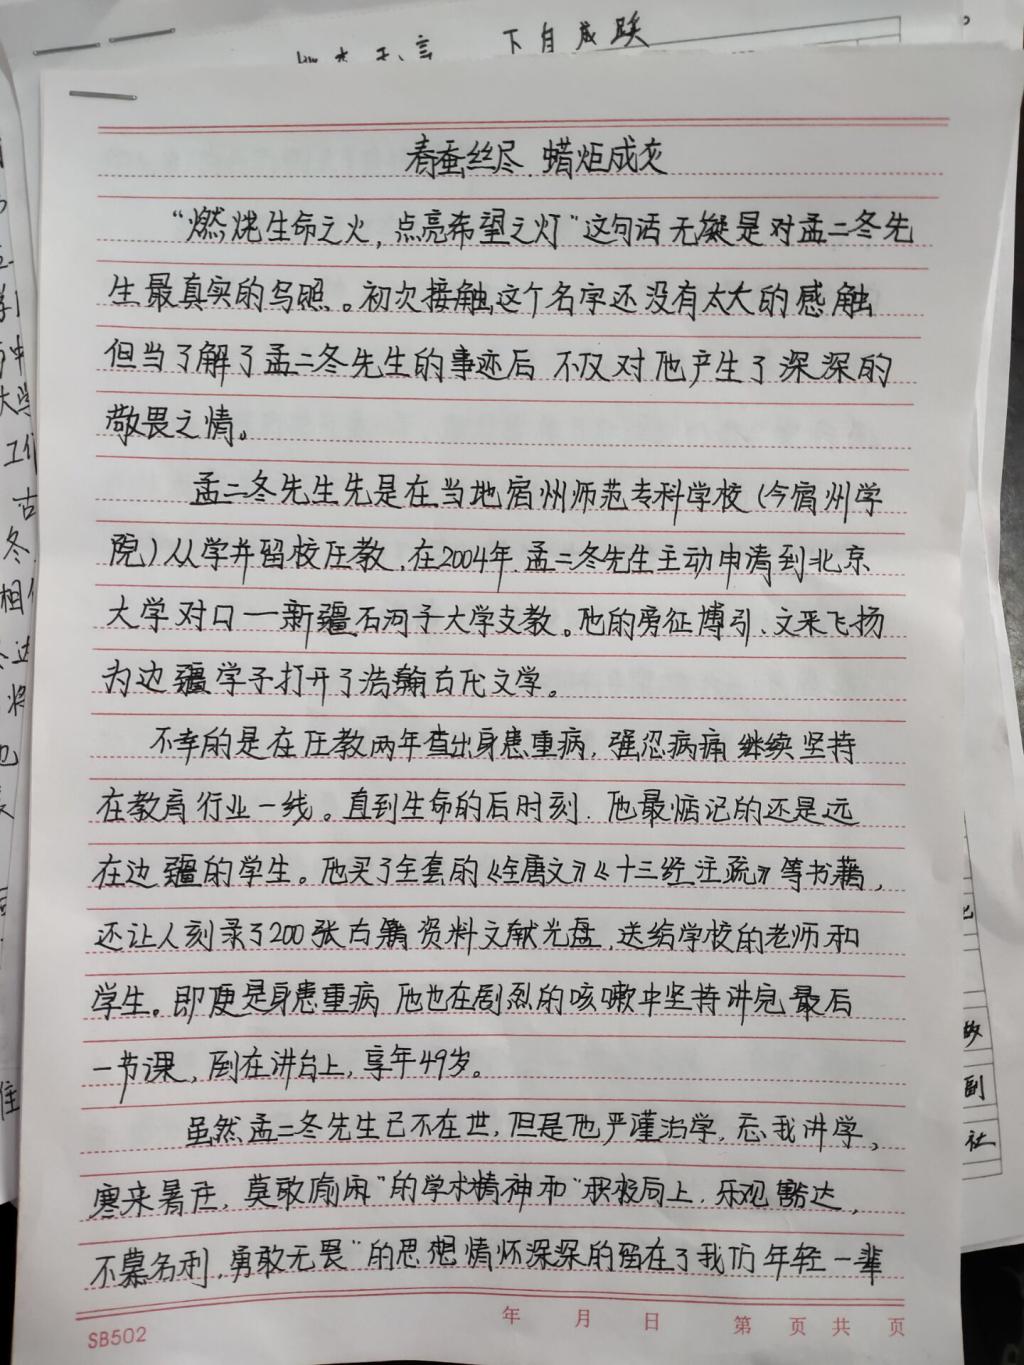 下自成蹊
春蚕丝尽 蜡炬成灰
“燃烧生命之火，点亮希望之灯”这句话无疑是对孟二冬先
生最真实的写照。初次接触这个名字还没有太大的感触
但当了解了孟二冬先生的事迹后 不仅对他产生了深深的
敬畏之情。
孟二冬先生先是在当地宿州师范专科学校（今宿州学
院）从学并留校任教，在2004年，孟二冬先生主动申请到北京
大学对口一新疆石河子大学支教。他的旁征博引、文采飞扬
为边疆学子打开了浩瀚古代文学。
不幸的是在任教两年查出身患重病，强忍病痛继续坚持
在教育行业一线。直到生命的后时刻，他最惦记的还是远
在边疆的学生。他买了全套的《全唐文》《十三经注疏》等书籍，
还让人刻录了200张古籍资料文献光盘，送给学校的老师和
学生。即便是身患重病 他也在剧烈的咳嗽中坚持讲完最后
一节课，倒在讲台上，享年49岁。
虽然孟二冬先生已不在世，但是他严谨治学，忘我讲学，
寒来暑往，莫敢偷闲”的学术精神和“积极向上，乐观豁达，
不慕名利，勇敢无畏”的思想情怀深深的留在了我们年轻一辈
SB502 年 月 日 第 页 共 页